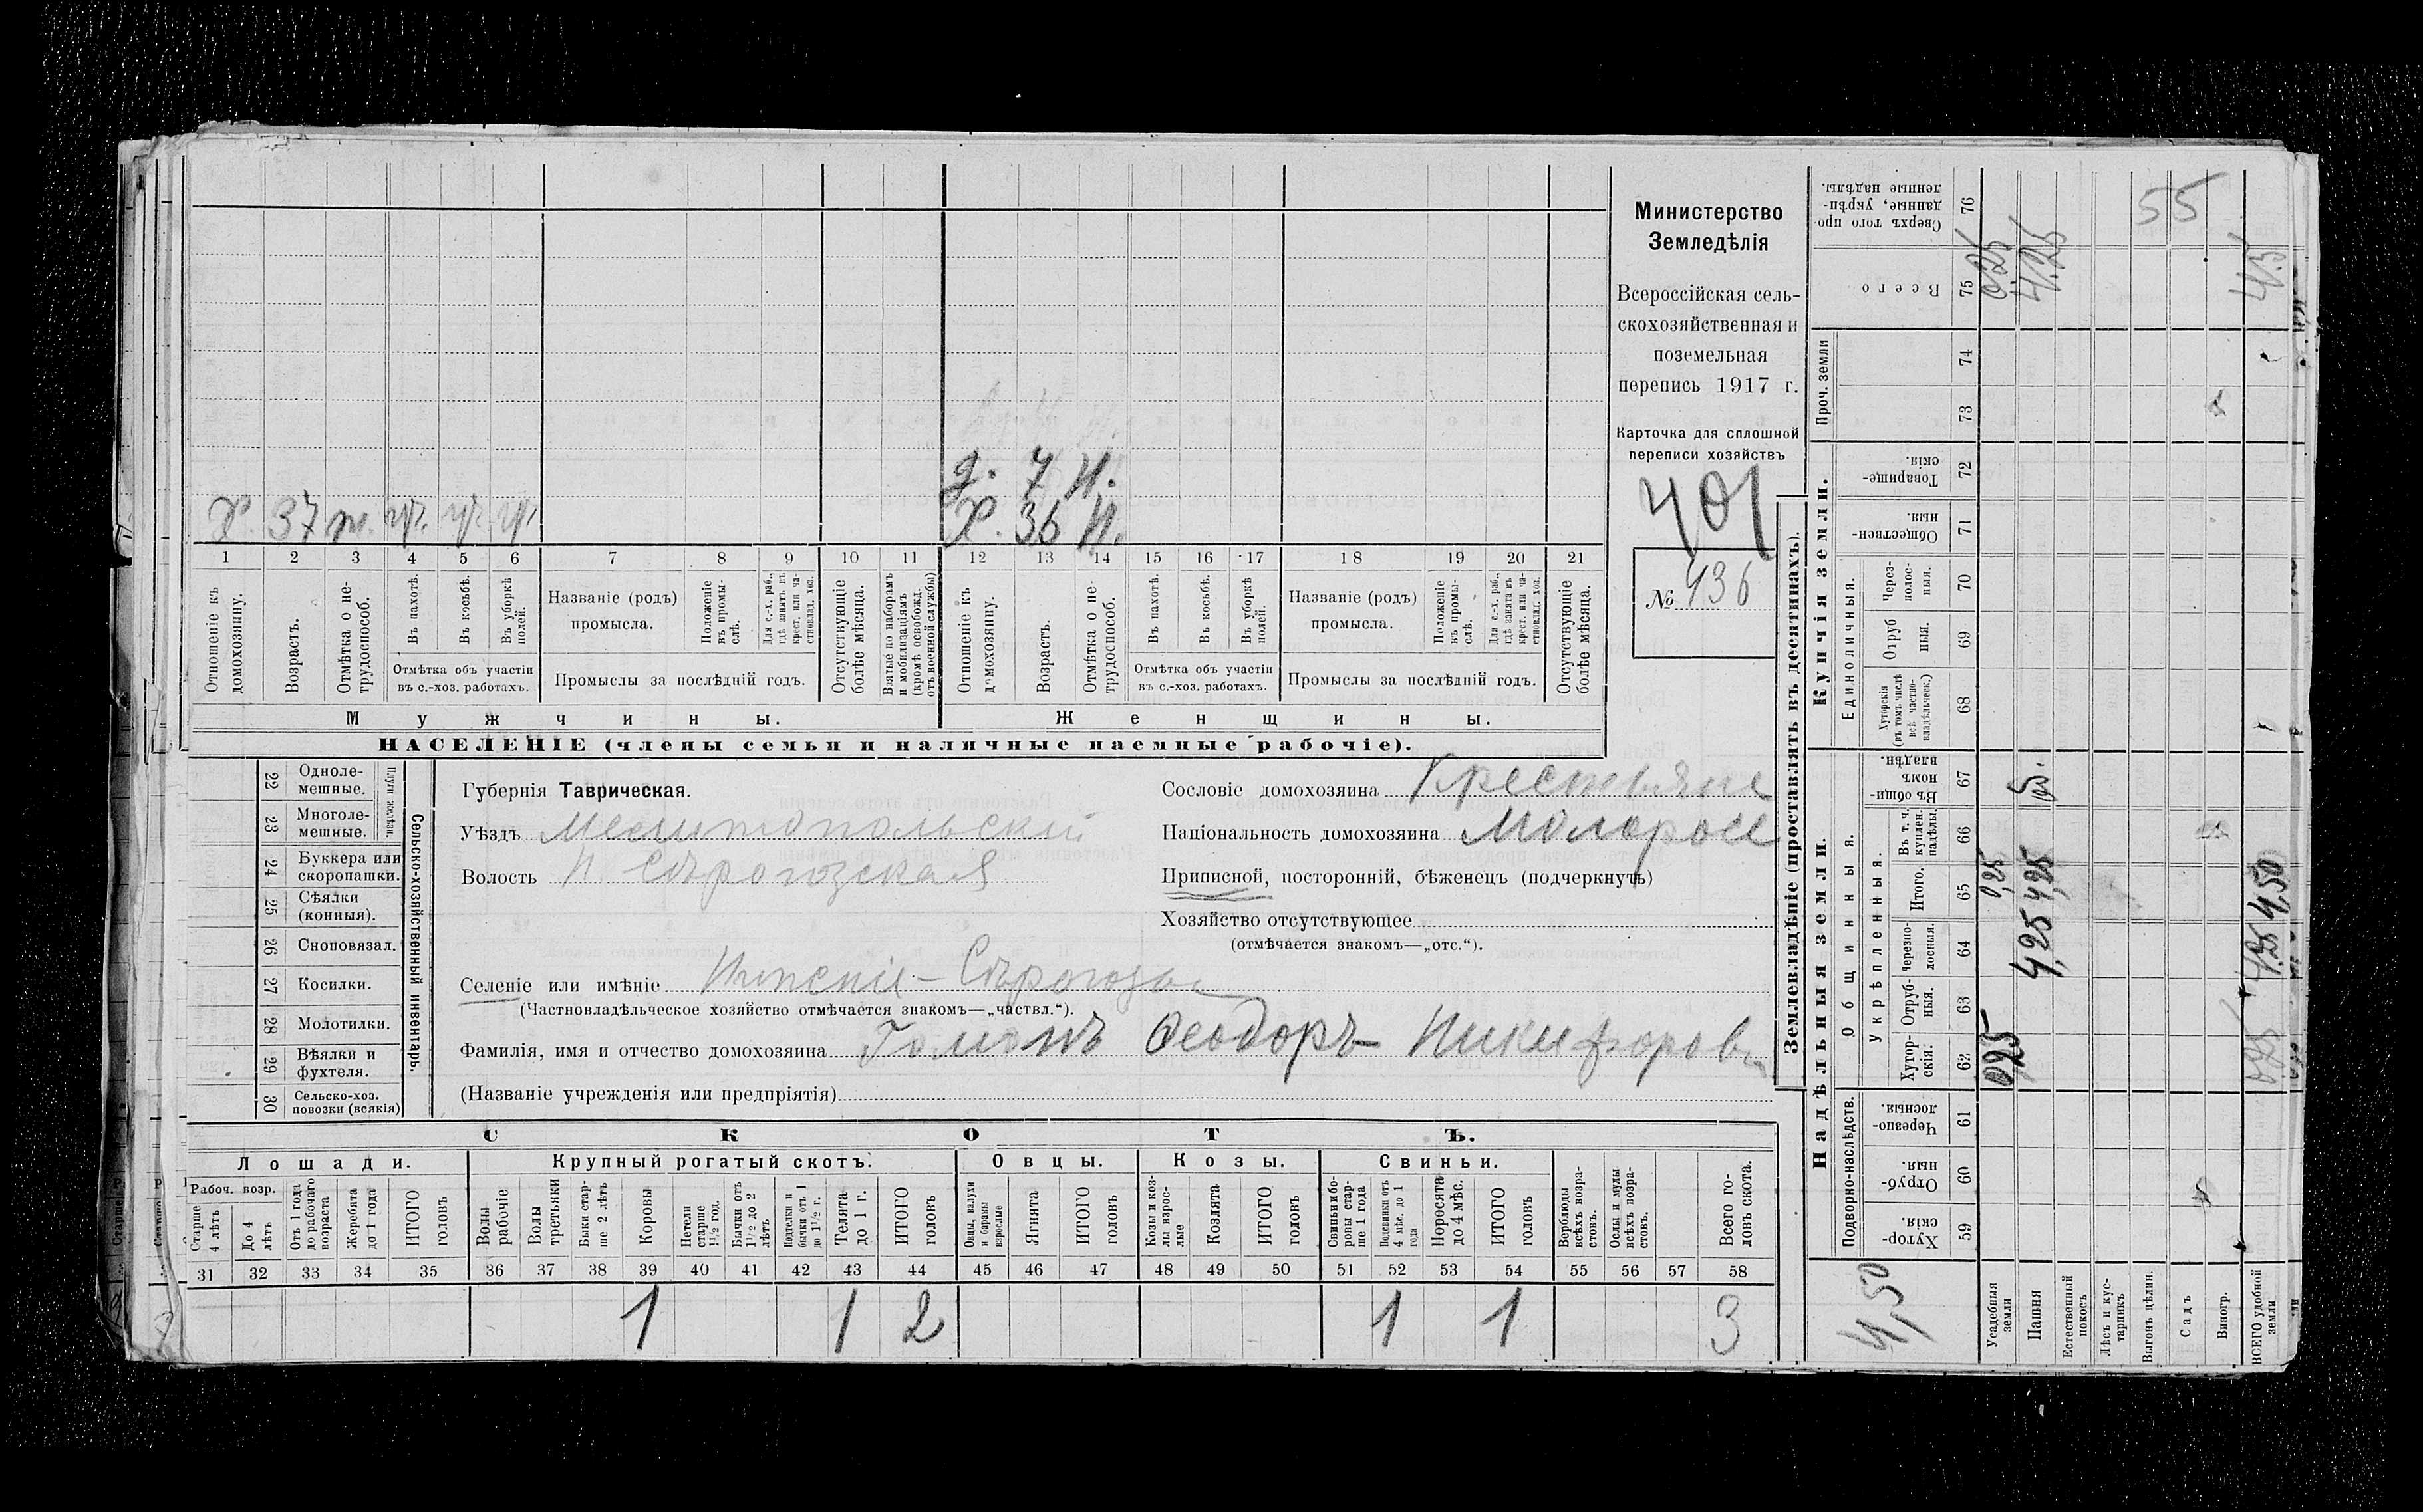 д. 4 н.
х. 37 т. ч. ч. ч.
х. 36 н.
1 2 3 4 5 6 7 8 9 10 11 12 13 14 15 16 17 18 19 20 21
Отношеніе къ домохозяину.
Возрастъ.
Отмѣтка о нетрудоспособ.
Въ пахотѣ.
Въ косьбѣ.
Въ уборкѣ полей.
Отмѣтка объ участіи въ с.-хоз. работахъ.
Названіе (родъ) промысла.
Положеніе въ промыслѣ.
Для с.-х. раб., гдѣ занятъ въ крест. или частновлад. хоз.
Промыслы за послѣдній годъ.
Отсутствующіе болѣе мѣсяца.
Взятые по наборамъ и мобилизаціямъ (кромѣ освобожд. отъ военной службы)
Отношеніе къ домохозяину.
Возрастъ.
Отмѣтка о нетрудоспособ.
Въ пахотѣ.
Въ косьбѣ.
Въ уборкѣ полей.
Отмѣтка объ участіи въ с.-хоз. работахъ.
Названіе (родъ) промысла.
Положеніе въ промыслѣ.
Для с.-х. раб., гдѣ занята въ крест. или частновлад. хоз.
Промыслы за послѣдній годъ.
Отсутствующіе болѣе мѣсяца.
Мужчины.
Женщины.
НАСЕЛЕНІЕ (члены семьи и наличные наемные рабочіе).
Министерство
Земледѣлія
Всероссійская сель-
скохозяйственная и
поземельная
перепись 1917 г.
Карточка для сплошной
переписи хозяйствъ
401
№ 436
Сельско-хозяйственный инвентарь.
Плуги желѣзн.
22 Одноле-
мешные.
23 Многоле-
мешные.
24 Буккера или
скоропашки.
25 Сѣялки
(конныя).
26 Сноповязал.
27 Косилки.
28 Молотилки.
29 Вѣялки и
фухтеля.
30 Сельско-хоз.
повозки (всякія)
Губернія Таврическая.
Уѣздъ Мелитопольскій
Волость Н. Сѣрогозская
Сословіе домохозяина Крестьяне
Національность домохозяина Малоросс
Приписной, посторонній, бѣженец (подчеркнуть)
Хозяйство отсутствующее
(отмѣчается знакомъ—„отс.“).
Селеніе или имѣніе Нижніе-Сѣрогозы
(Частновладѣльческое хозяйство отмѣчается знакомъ—„частвл.“).
Фамилія, имя и отчество домохозяина Гомонъ Ѳеодоръ Никифоров
(Названіе учрежденія или предпріятія)
СКОТЪ.
Лошади.
Крупный рогатый скотъ.
Овцы.
Козы.
Свиньи.
Рабоч. возр.
Старше 4 лѣтъ
До 4 лѣтъ
Отъ 1 года до рабочаго возраста
Жеребята до 1 года
ИТОГО головъ
Волы рабочіе
Волы третьяки
Быки старше 2 лѣтъ
Коровы
Нетели старше 1½ год.
Бычки отъ 1½ до 2 лѣтъ
Подтелки и бычки отъ 1 до 1½ г.
Телята до 1 г.
ИТОГО головъ
Овцы, валухи и бараны взрослые
Ягнята
ИТОГО головъ
Козы и козлы взрослые
Козлята
ИТОГО головъ
Свиньи и боровы старше 1 года
Подсвинки отъ 4 мѣс. до 1 года
Поросята до 4 мѣс.
ИТОГО головъ
Верблюды всѣхъ возрастовъ.
Ослы и мулы всѣхъ возрастовъ.
Всего головъ скота.
31 32 33 34 35 36 37 38 39 40 41 42 43 44 45 46 47 48 49 50 51 52 53 54 55 56 57 58
1 1 2 1 1 3
Землевладѣніе (проставлять въ десятинахъ).
Надѣльныя земли.
Купчія земли.
Проч. земли
Подворно-наслѣдств.
Общинныя.
Укрѣпленныя.
Единоличныя.
Хуторскія. 59
Отрубныя. 60
Черезполосныя. 61
Хуторскія. 62
Отрубныя. 63
Черезполосныя. 64
Итого. 65
Въ т. ч. куплен. надѣлы. 66
Въ общинномъ владѣн. 67
Хуторскія (въ томъ числѣ всѣ частновладѣльческ.) 68
Отрубныя. 69
Черезполосныя. 70
Общественныя. 71
Товарищескія. 72
73
74
Всего 75
Сверхъ того проданные, укрѣпленные надѣлы. 76
4,50
Усадебныя земли 0,25 0,25 0,25
Пашня 4,25 4,25 4,25
Естественный покосъ
Лѣсъ и кустарникъ
Выгонъ цѣлин.
Садъ
Виногр.
ВСЕГО удобной земли 4,25 4,50 4,5
55